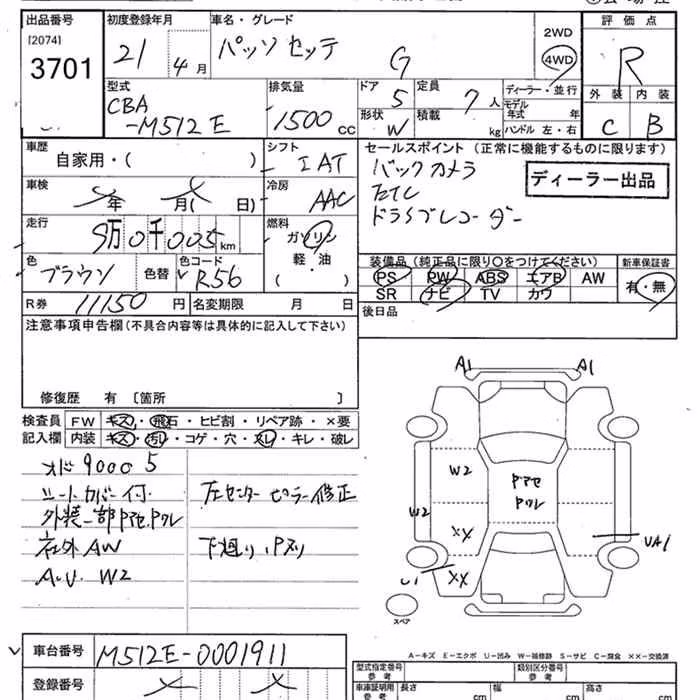 出品番号
[2074]
3701
初度登録年月
21
4 月
車名・グレード
パッソ セッテ
G
2WD
4WD
評価点
R
型式
CBA
-M512E
排気量
1500
CC
ドア
5
定員
7 人
形状
W
積載
kg
ディーラー・並行
モデル
年式 年
ハンドル 左・右
外装 内装
C B
車歴
自家用・( )
シフト
IAT
セールスポイント (正常に機能するものに限ります)
バックカメラ
ETC
ドライブレコーダー
ディーラー出品
車検
年 月( 日)
冷房
AAC
走行
9万0千005km
燃料
ガソリン
軽・油
( )
色
ブラウン
色替
色コード
R56
装備品 (純正品に限り○をつけてください)
PS PW ABS エアB AW
SR ナビ TV カワ
新車保証書
有・無
R券 11150 円
名変期限 月 日
後日品
注意事項申告欄(不具合内容等は具体的に記入して下さい)
修復歴 有 〔箇所 〕
検査員 FW キズ・飛石・ヒビ割・リペア跡・×要
記入欄 内装 キズ・汚レ・コゲ・穴・スレ・キレ・破レ
メーター 90005
シートカバー付
左センターピラー修正
外装一部Pアセ,Pクレ
社外AW
下廻り,Pヌリ
A.U. W2
A1 A1
W2
Pアセ
Pクレ
W2
XX
UA1
U1
XX
スペア
A-キズ E-エクボ U-凹み W-補修跡 S-サビ C-腐食 ××-交換済
車台番号 M512E-0001911
登録番号
型式指定番号
参考
類別区分番号
参考
車庫証明用
参考
長さ cm
幅 cm
高さ cm